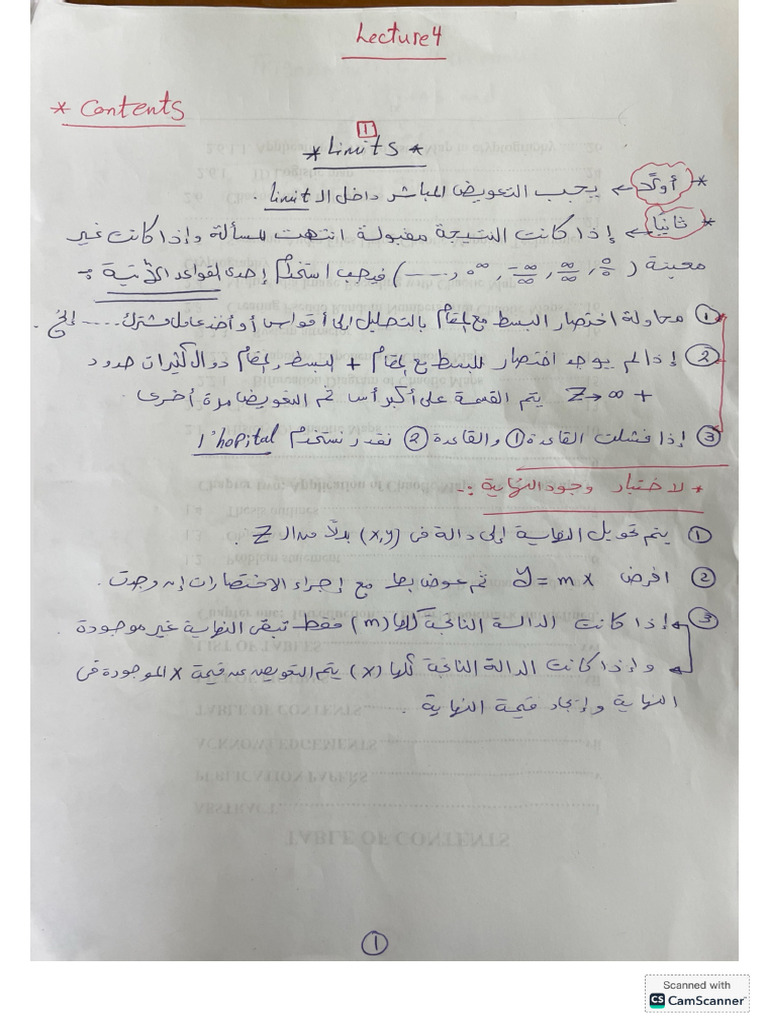 Lecture 4
* Contents
1
* Limits *
* أولاً ← يجب التعويض المباشر داخل الـ limit .
* ثانياً ← إذا كانت النتيجة مقبولة انتهت المسألة وإذا كانت غير
معينة ( 0/0 , ∞/∞ , -∞/∞ , 0^∞ , ---- ) فيجب استخدام إحدى القواعد الآتية :-
① محاولة اختصار البسط مع المقام بالتحليل إلى أقواس أو أخذ عامل مشترك ---- إلخ .
② إذا لم يوجد اختصار للبسط مع المقام + البسط والمقام دوال كثيرات حدود
+ Z→∞ يتم القسمة على أكبر أس ثم التعويض مرة أخرى .
③ إذا فشلت القاعدة ① والقاعدة ② نقدر نستخدم l'hopital
* لاختبار وجود النهاية :-
① يتم تحويل النهاية إلى دالة في (x,y) بدلاً من الـ Z .
② افرض y = mx ثم عوض بها مع إجراء الاختصارات إن وجدت .
③ إذا كانت الدالة الناتجة كلها (m) فقط تبقى النهاية غير موجودة .
وإذا كانت الدالة الناتجة كلها (x) يتم التعويض عن قيمة x الموجودة في
النهاية وإيجاد قيمة النهاية .
①
Scanned with
CS CamScanner